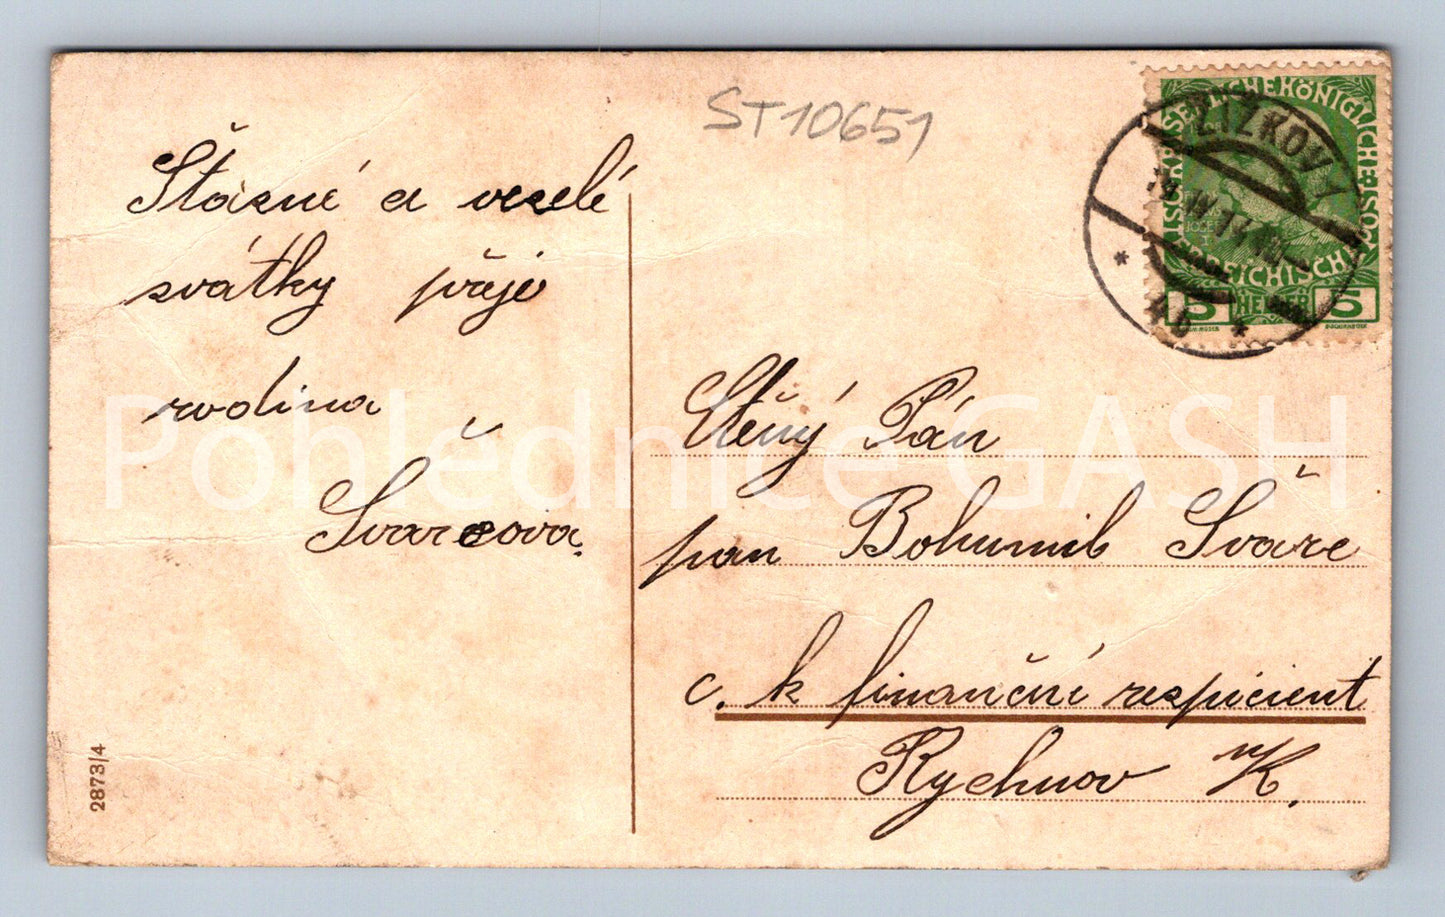 ST10651
Šťasné a veselé
svátky přeje
rodina
Švarcova.
Ctěný Pán
pan Bohumil Švarc
c. k finanční respicient
Rychnov n/K.
2873/4
KAISERLICHE KÖNIGLICHE
ÖSTERREICHISCHE
5 HELLER 5
ŽIŽKOV 1
* 4b *
Pohlednice GASH